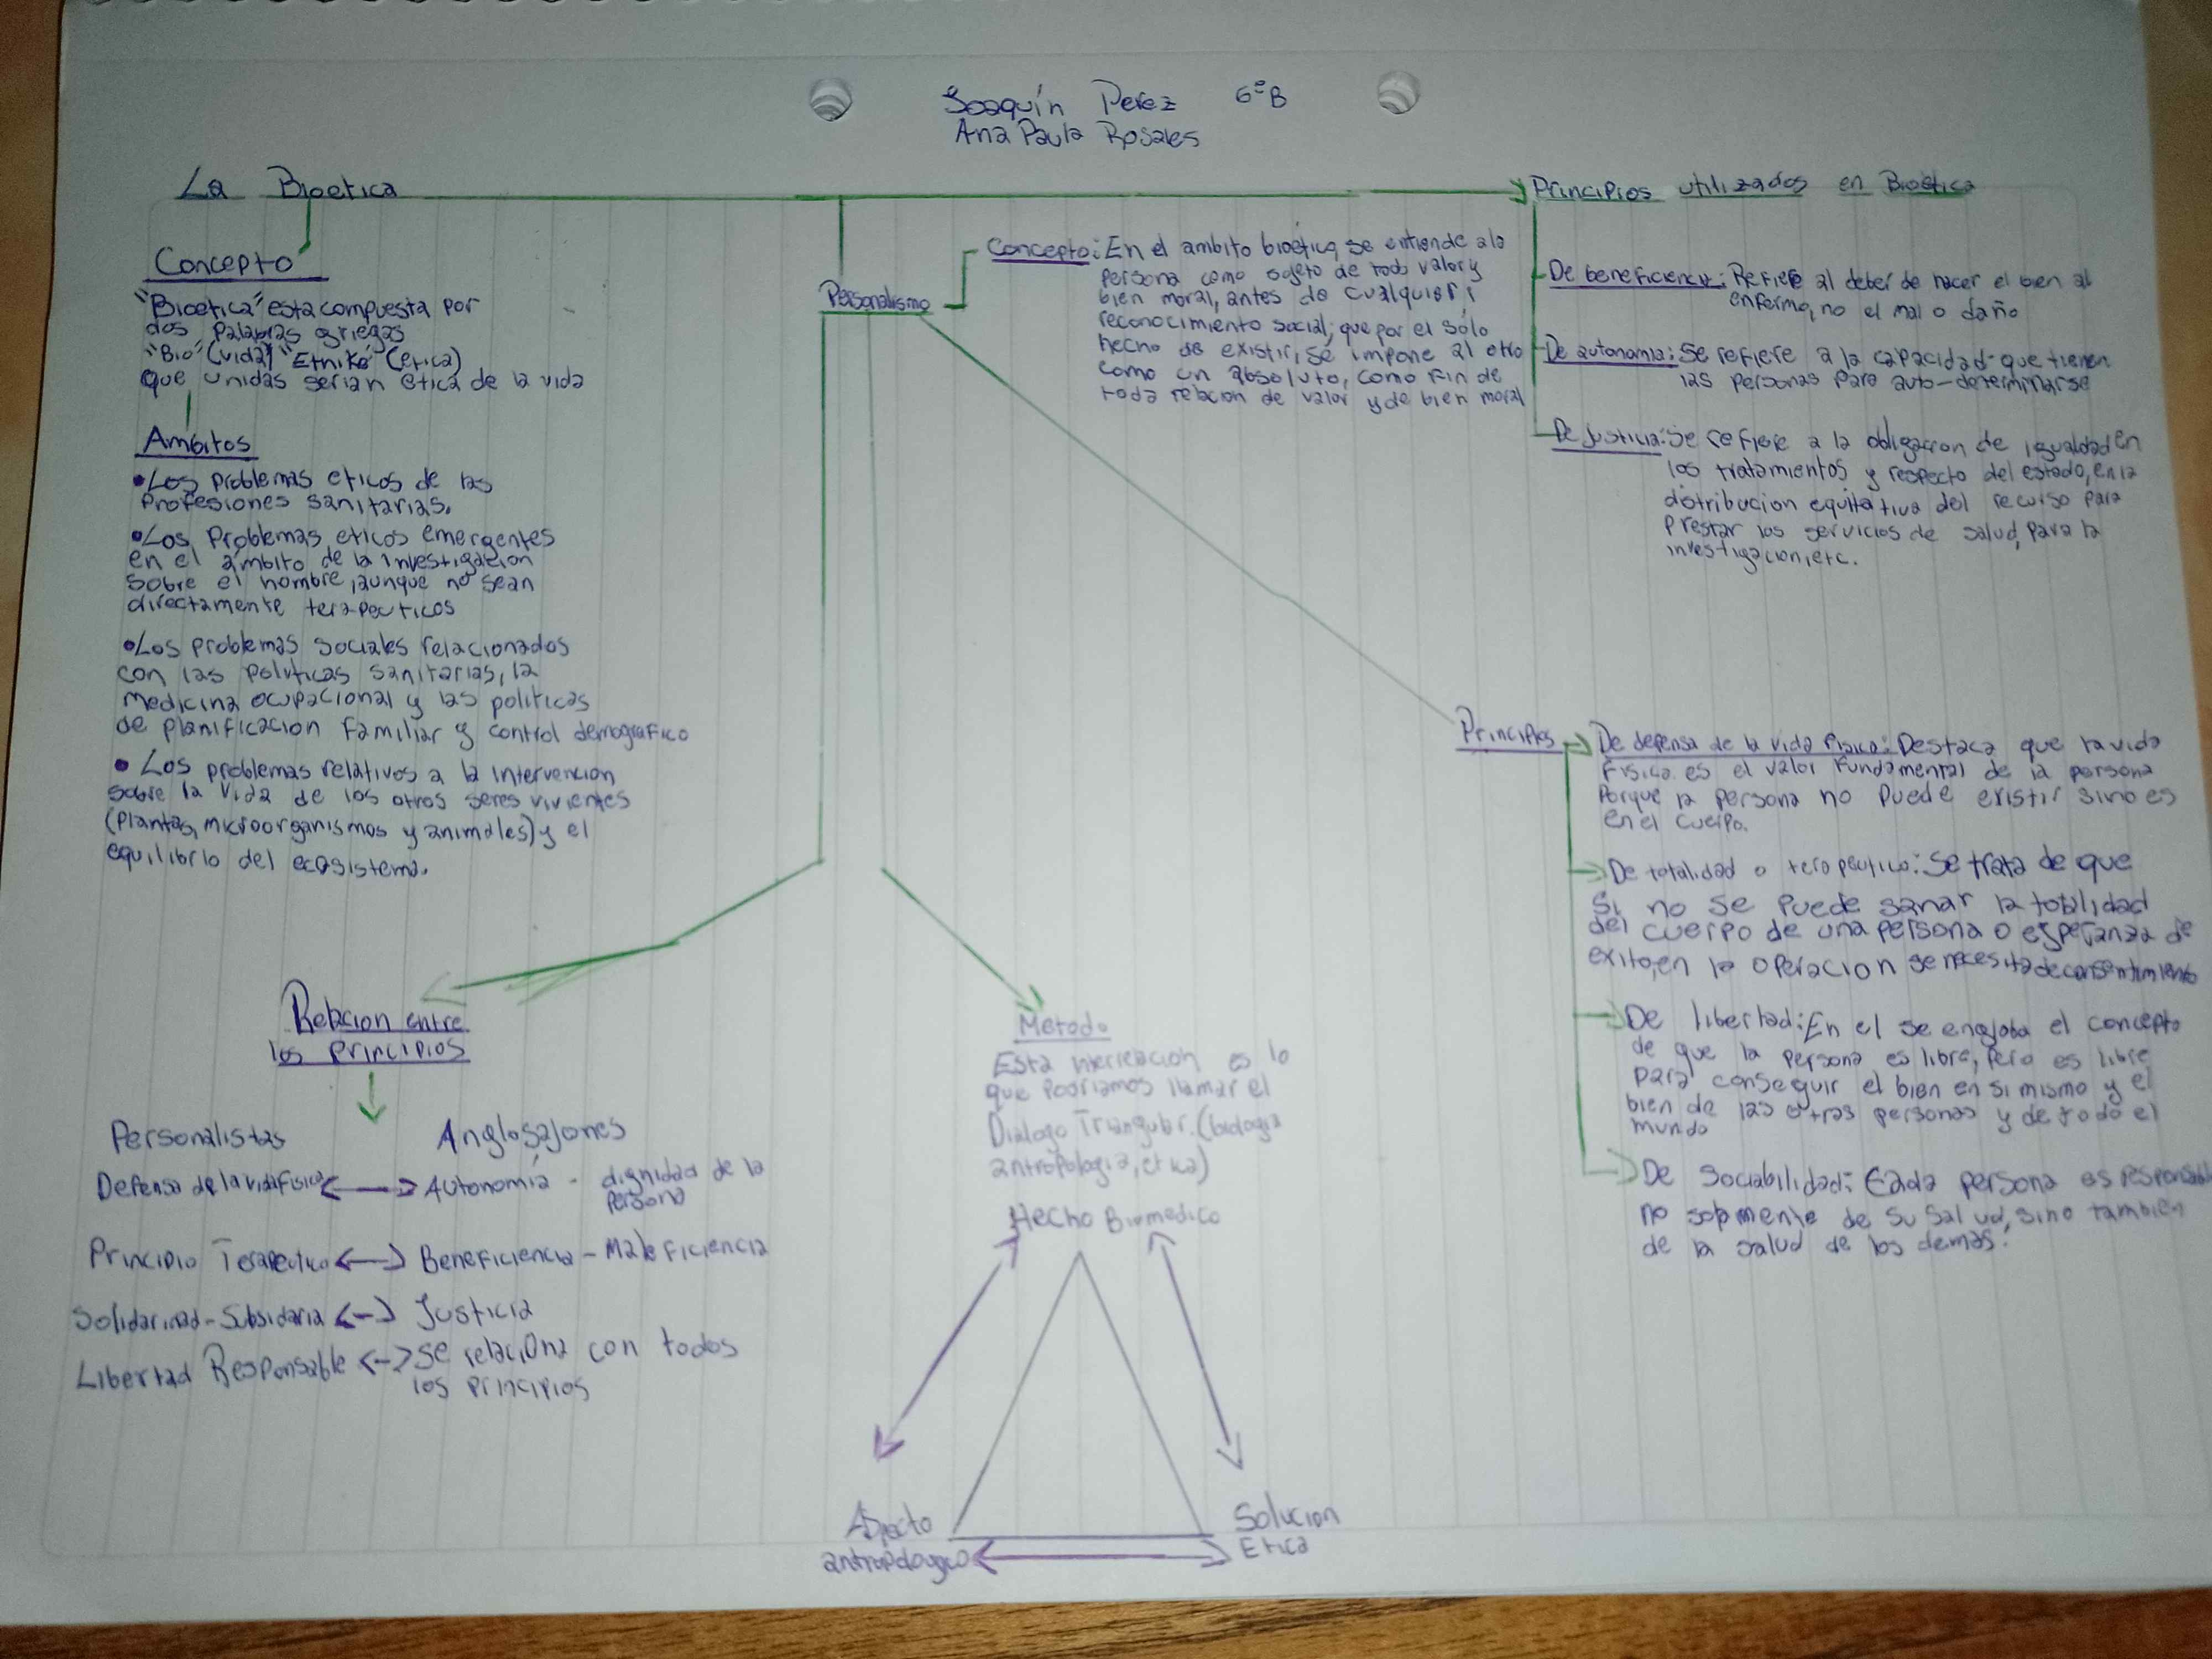 Joaquín Perez 6ºB
Ana Paula Rosales
La Bioetica
Concepto
"Bioetica" esta compuesta por
dos palabras griegas
"Bio" (vida) "Ethiké" (etica)
que unidas serian etica de la vida
Ambitos
•Los problemas eticos de las
Profesiones sanitarias.
•Los Problemas eticos emergentes
en el ámbito de la investigacion
sobre el hombre, aunque no sean
directamente terapeuticos
•Los problemas sociales relacionados
con las politicas sanitarias, la
medicina ocupacional y las politicas
de planificacion familiar y control demografico
• Los problemas relativos a la intervencion
sobre la vida de los otros seres vivientes
(plantas, microorganismos y animales) y el
equilibrio del ecosistema.
Personalismo
Concepto: En el ambito bioética, se entiende a la
persona como sujeto de todo valor y
bien moral, antes de cualquier
reconocimiento social; que por el sólo
hecho de existir, se impone al otro
como un absoluto, como fin de
toda relacion de valor y de bien moral
Principios utilizados en Bioetica
De beneficiencia: Refiere al deber de hacer el bien al
enfermo, no el mal o daño
De autonomia: Se refiere a la capacidad que tienen
las personas para auto-determinarse
De justicia: Se refiere a la obligacion de igualdad en
los tratamientos y respecto del estado, en la
distribucion equitativa del recurso para
prestar los servicios de salud, para la
investigacion, etc.
Principios
De defensa de la vida fisica: Destaca que la vida
fisica es el valor fundamental de la persona
Porque la persona no puede existir sino es
en el cuerpo.
De totalidad o terapeutico: Se trata de que
Si no se puede sanar la totalidad
del cuerpo de una persona o esperanza de
exito, en la operacion se necesita de consentimiento
De libertad: En el se engloba el concepto
de que la persona es libre, pero es libre
para conseguir el bien en si mismo y el
bien de las otras personas y de todo el
mundo
De Sociabilidad: Cada persona es responsable
no solamente de su salud, sino tambien
de la salud de los demas.
Relacion entre
los principios
Personalistas Anglosajones
Defensa de la vida fisica Autonomía - dignidad de la
persona
Principio Terapeutico Beneficiencia - Maleficiencia
Solidarinad - Subsidaria Justicia
Libertad Responsable se relaciona con todos
los principios
Metodo
Esta interrelacion es lo
que podriamos llamar el
Dialogo Triangular. (biologia
antropologia, etica)
Hecho Biomedico
Aspecto
antropologico
Solucion
Etica